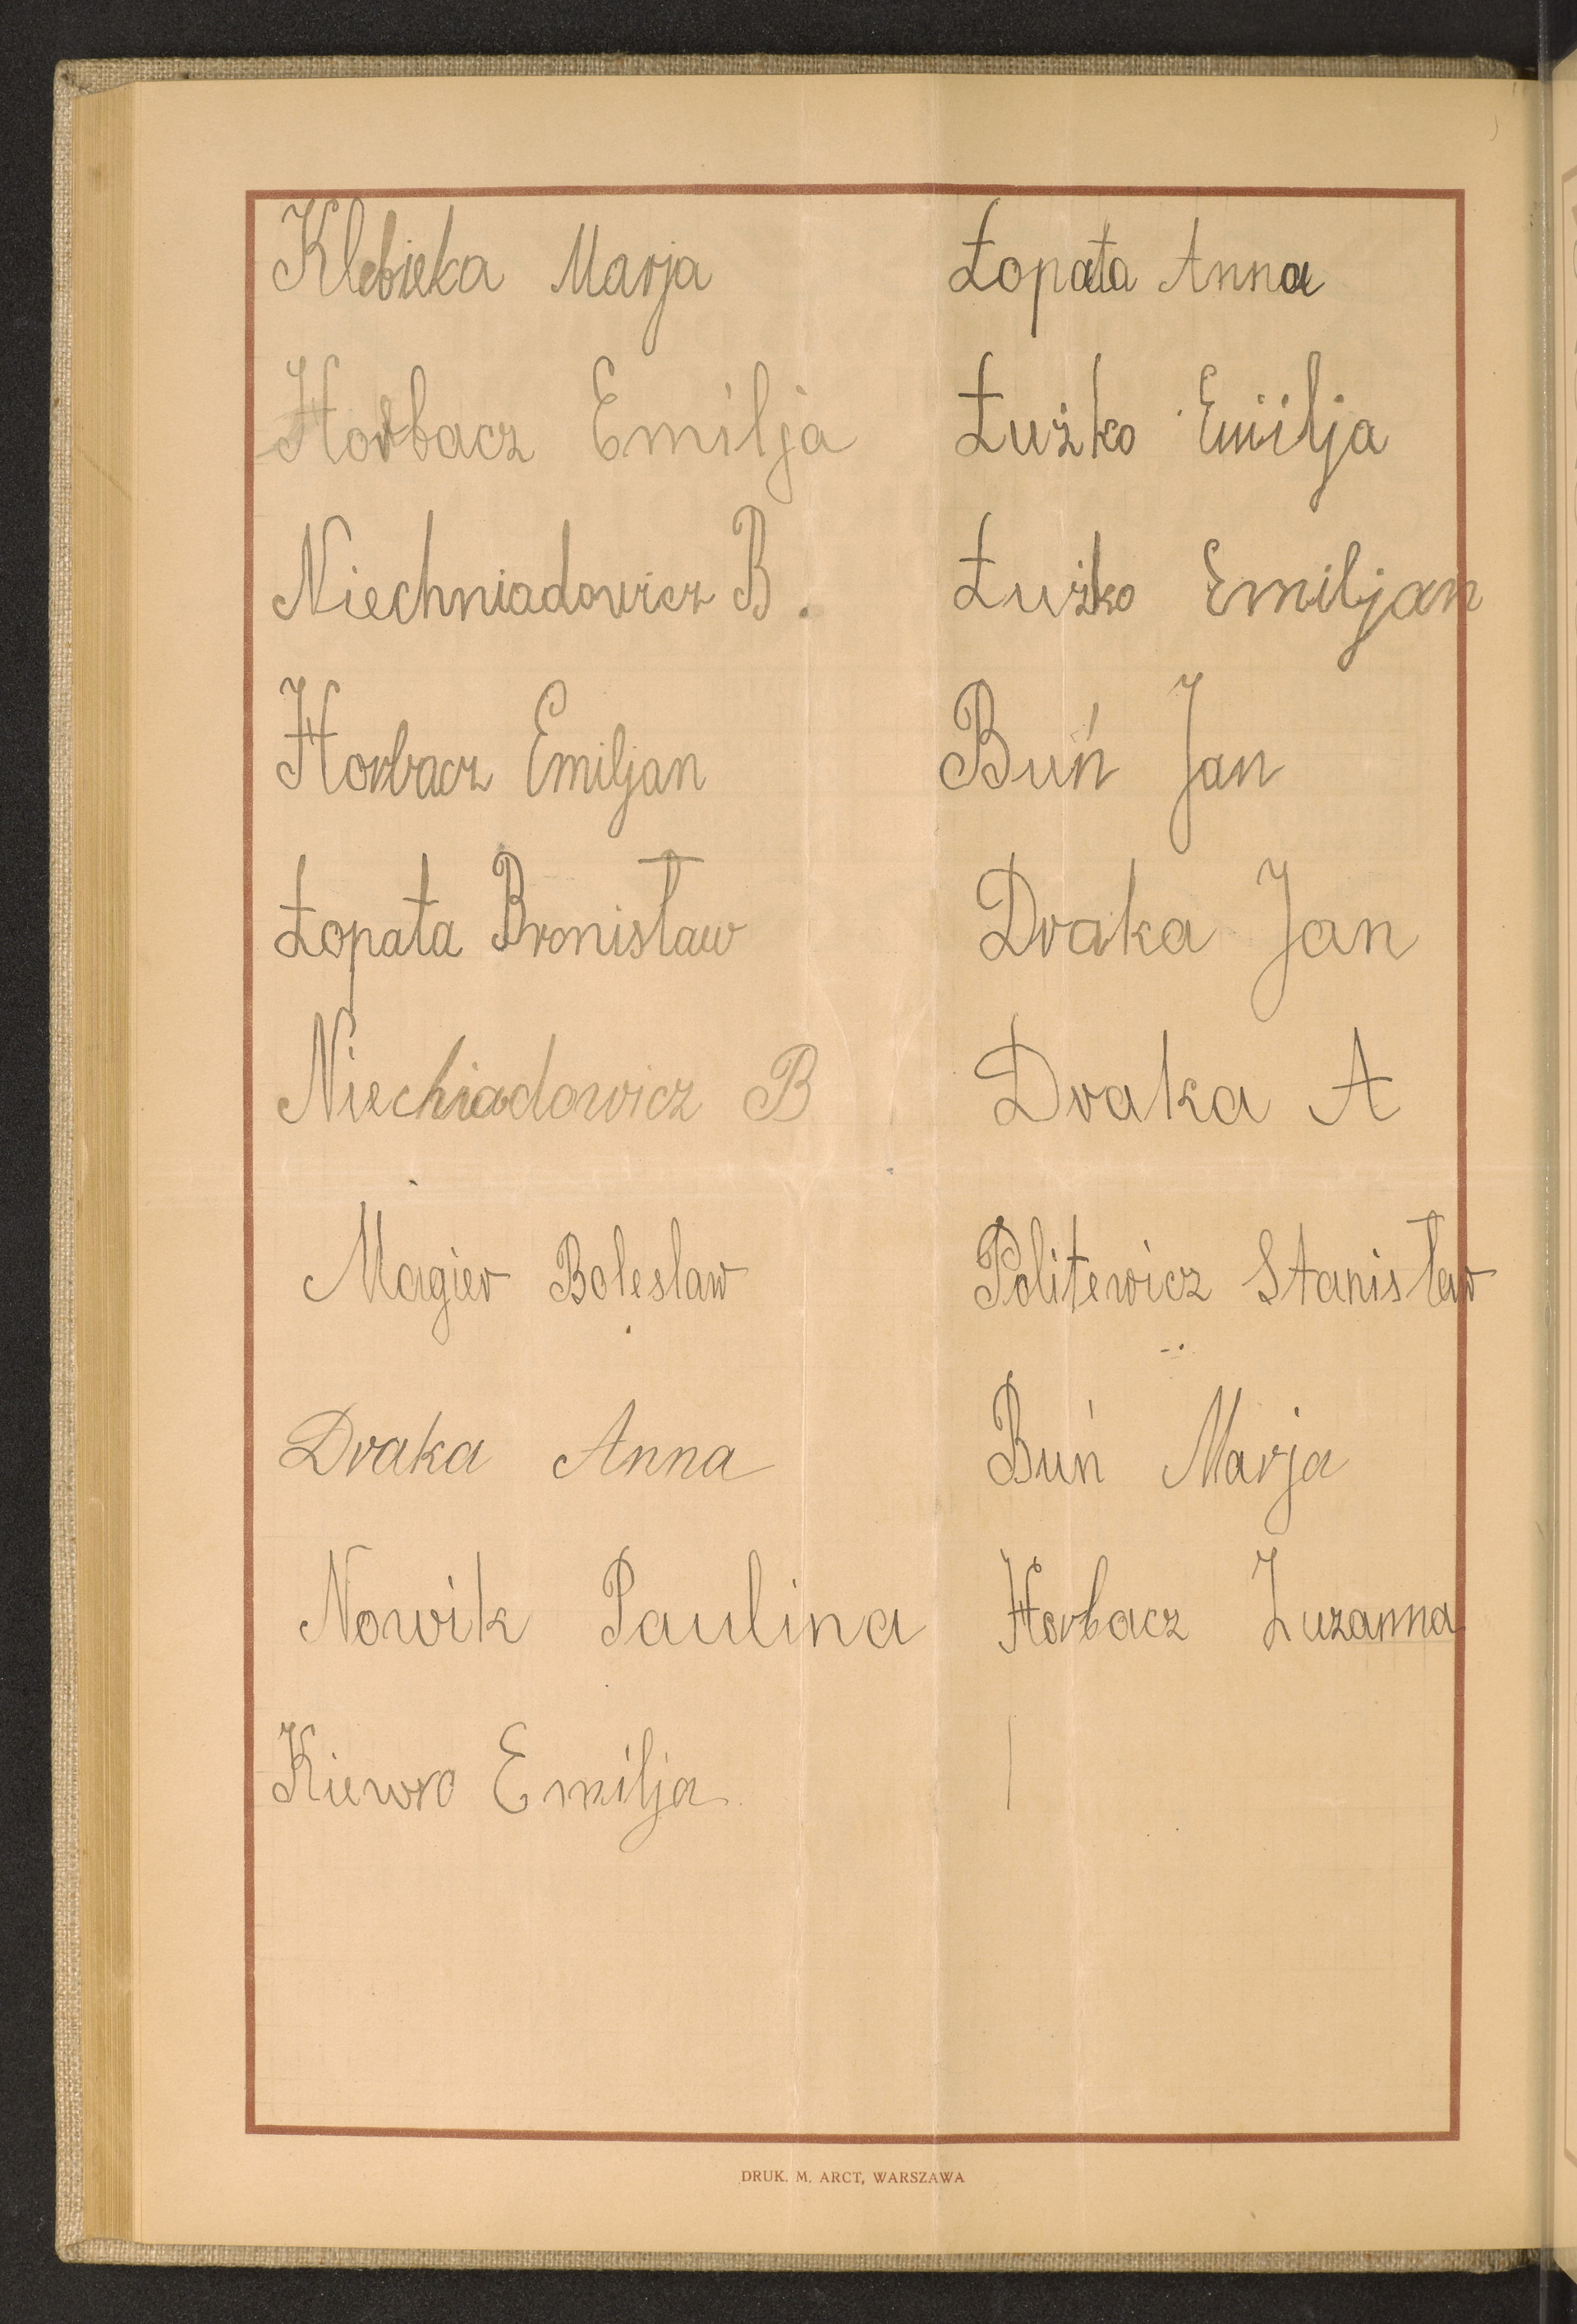 Klebieka Marja
Horbacz Emilja
Niechniadowicz B.
Horbacz Emiljan
Łopata Bronisław
Niechiadowicz B
Magier Boleslaw
Draka Anna
Nowik Paulina
Kiewro Emilja
Łopata Anna
Łużko Emilja
Łużko Emiljan
Buń Jan
Draka Jan
Draka A
Politewicz Stanisław
Buń Marja
Horbacz Zuzanna
DRUK. M. ARCT, WARSZAWA